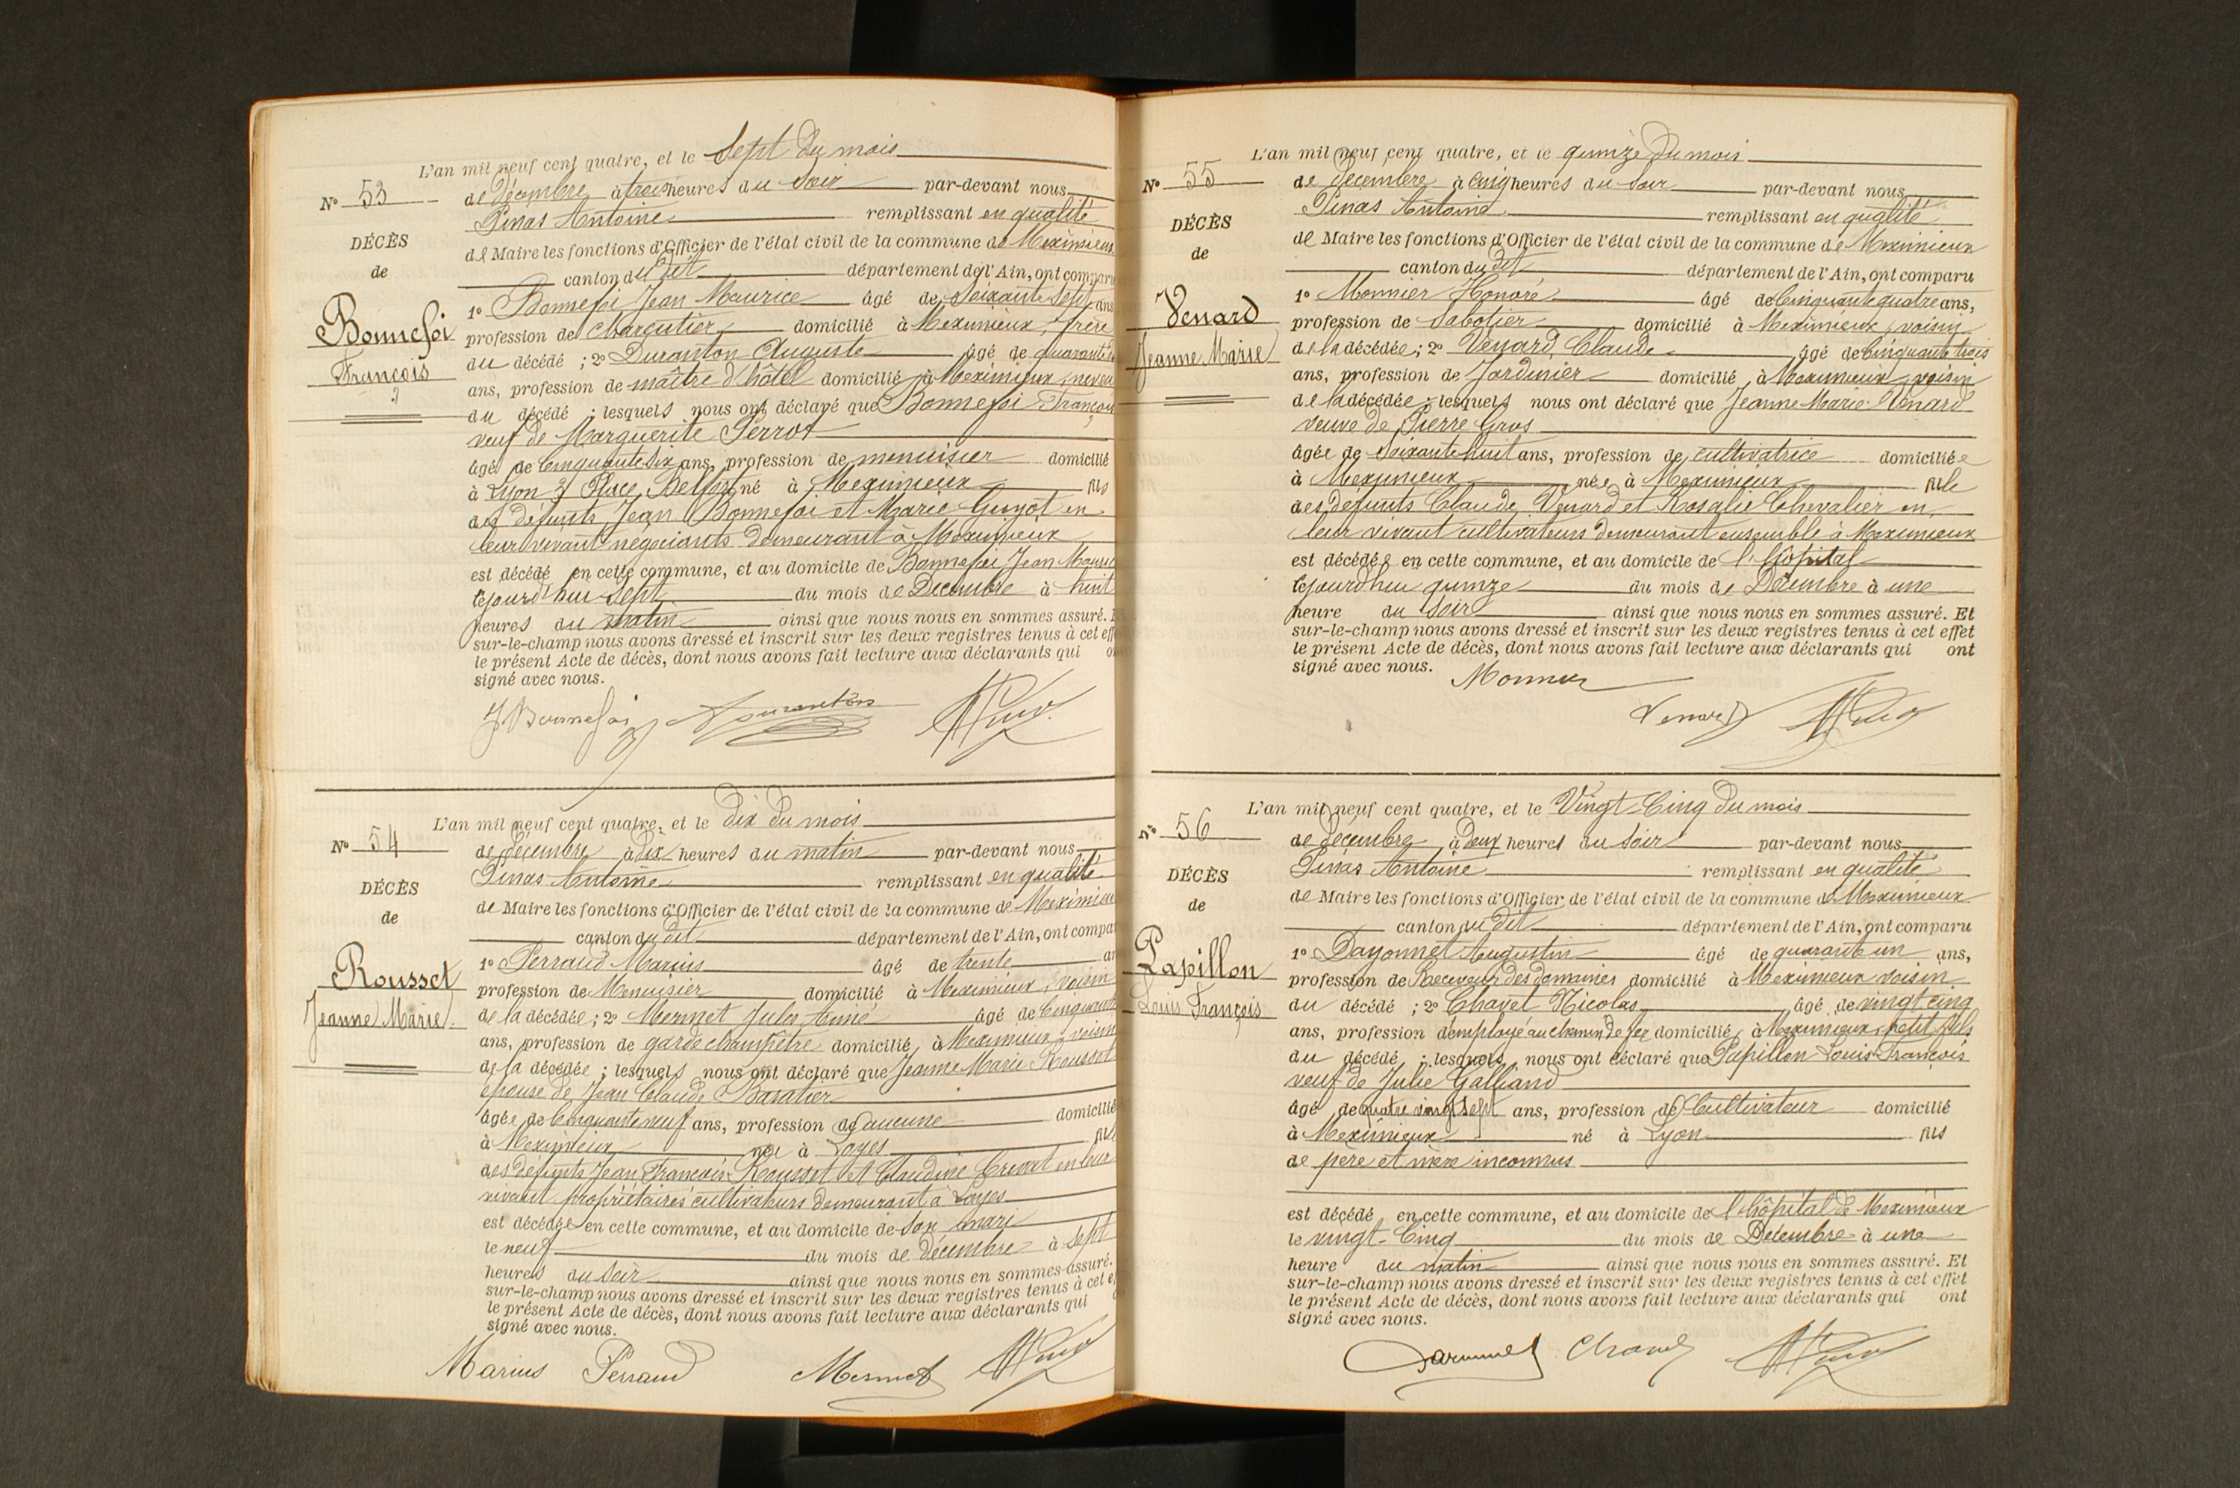 L'an mil neuf cent quatre, et le Sept du mois
N° 53
de Décembre à trois heures du soir par-devant nous
Pinas Antoine remplissant en qualité
DÉCÈS
de Maire les fonctions d'Officier de l'état civil de la commune de Meximieux
de
canton du dit département de l'Ain, ont comparu
1° Bonnefoi Jean Maurice âgé de Soixante Sept ans
Bonnefoi
profession de charcutier domicilié à Meximieux, frère
du décédé ; 2° Duranton Auguste âgé de quarante
François
ans, profession de maître d'hôtel domicilié à Meximieux, neveu
du décédé ; lesquels nous ont déclaré que Bonnefoi François
veuf de Marguerite Perrot
âgé de Cinquante six ans, profession de menuisier domicilié
à Lyon 3 Place Belfort né à Meximieux fils
des défunts Jean Bonnefoi et Marie Guyot en
leur vivant négociants demeurant à Meximieux
est décédé en cette commune, et au domicile de Bonnefoi Jean Maurice
cejourd'hui Sept du mois de Décembre à huit
heures du matin ainsi que nous nous en sommes assuré.
sur-le-champ nous avons dressé et inscrit sur les deux registres tenus à cet eff
le présent Acte de décès, dont nous avons fait lecture aux déclarants qui
signé avec nous.
J Bonnefoi Duranton
L'an mil neuf cent quatre, et le dix du mois
N° 54
de Décembre à dix heures du matin par-devant nous
Pinas Antoine remplissant en qualité
DÉCÈS
de Maire les fonctions d'Officier de l'état civil de la commune de Meximieux
de
canton du dit département de l'Ain, ont compar
1° Perraud Marius âgé de trente an
Rousset
profession de Menuisier domicilié à Meximieux, voisin
Jeanne Marie
de la décédée ; 2° Mermet Jules Aimé âgé de Cinquante
ans, profession de garde champêtre domicilié à Meximieux, voisin
de la décédée ; lesquels nous ont déclaré que Jeanne Marie Rousset
épouse de Jean Claude Baratier
âgée de Cinquante neuf ans, profession de aucune domicilié
à Meximieux née à Loyes fille
des défunts Jean François Rousset et Claudine en leur
vivant propriétaires cultivateurs demeurant à Loyes
est décédée en cette commune, et au domicile de son mari
le neuf du mois de décembre à sept
heures du soir ainsi que nous nous en sommes assuré.
sur-le-champ nous avons dressé et inscrit sur les deux registres tenus à cet ef
le présent Acte de décès, dont nous avons fait lecture aux déclarants qui
signé avec nous.
Marius Perraud Mermet
L'an mil neuf cent quatre, et le quinze du mois
N° 55
de Décembre à Cinq heures du Soir par-devant nous
Pinas Antoine remplissant en qualité
DÉCÈS
de Maire les fonctions d'Officier de l'état civil de la commune de Meximieux
de
canton du dit département de l'Ain, ont comparu
1° Monnier Honoré âgé de Cinquante quatre ans,
Venard
profession de Sabotier domicilié à Meximieux, voisin
Jeanne Marie
de la décédée ; 2° Venard Claude âgé de Cinquante trois
ans, profession de Jardinier domicilié à Meximieux, voisin
de la décédée ; lesquels nous ont déclaré que Jeanne Marie Venard
veuve de Pierre Gros
âgée de Soixante huit ans, profession de cultivatrice domiciliée
à Meximieux née à Meximieux fille
des défunts Claude Venard et Rosalie Chevalier en
leur vivant cultivateurs demeurant ensemble à Meximieux
est décédée en cette commune, et au domicile de l'hôpital
cejourd'hui quinze du mois de Décembre à une
heure du Soir ainsi que nous nous en sommes assuré. Et
sur-le-champ nous avons dressé et inscrit sur les deux registres tenus à cet effet
le présent Acte de décès, dont nous avons fait lecture aux déclarants qui ont
signé avec nous.
Monnier
Venard
L'an mil neuf cent quatre, et le Vingt-Cinq du mois
N° 56
de Décembre à deux heures du soir par-devant nous
Pinas Antoine remplissant en qualité
DÉCÈS
de Maire les fonctions d'Officier de l'état civil de la commune de Meximieux
de
canton du dit département de l'Ain, ont comparu
1° Augustin âgé de quarante un ans,
Papillon
profession de Receveur des domaines domicilié à Meximieux voisin
Louis François
du décédé ; 2° Chavet Nicolas âgé de vingt cinq
ans, profession d'employé au chemin de fer domicilié à Meximieux, petit fils
du décédé ; lesquels nous ont déclaré que Papillon Louis François
veuf de Julie Galland
âgé de quatre vingt sept ans, profession de Cultivateur domicilié
à Meximieux né à Lyon fils
de père et mère inconnus
est décédé en cette commune, et au domicile de l'hôpital de Meximieux
le vingt-Cinq du mois de Décembre à une
heure du matin ainsi que nous nous en sommes assuré. Et
sur-le-champ nous avons dressé et inscrit sur les deux registres tenus à cet effet
le présent Acte de décès, dont nous avons fait lecture aux déclarants qui ont
signé avec nous.
Chavet